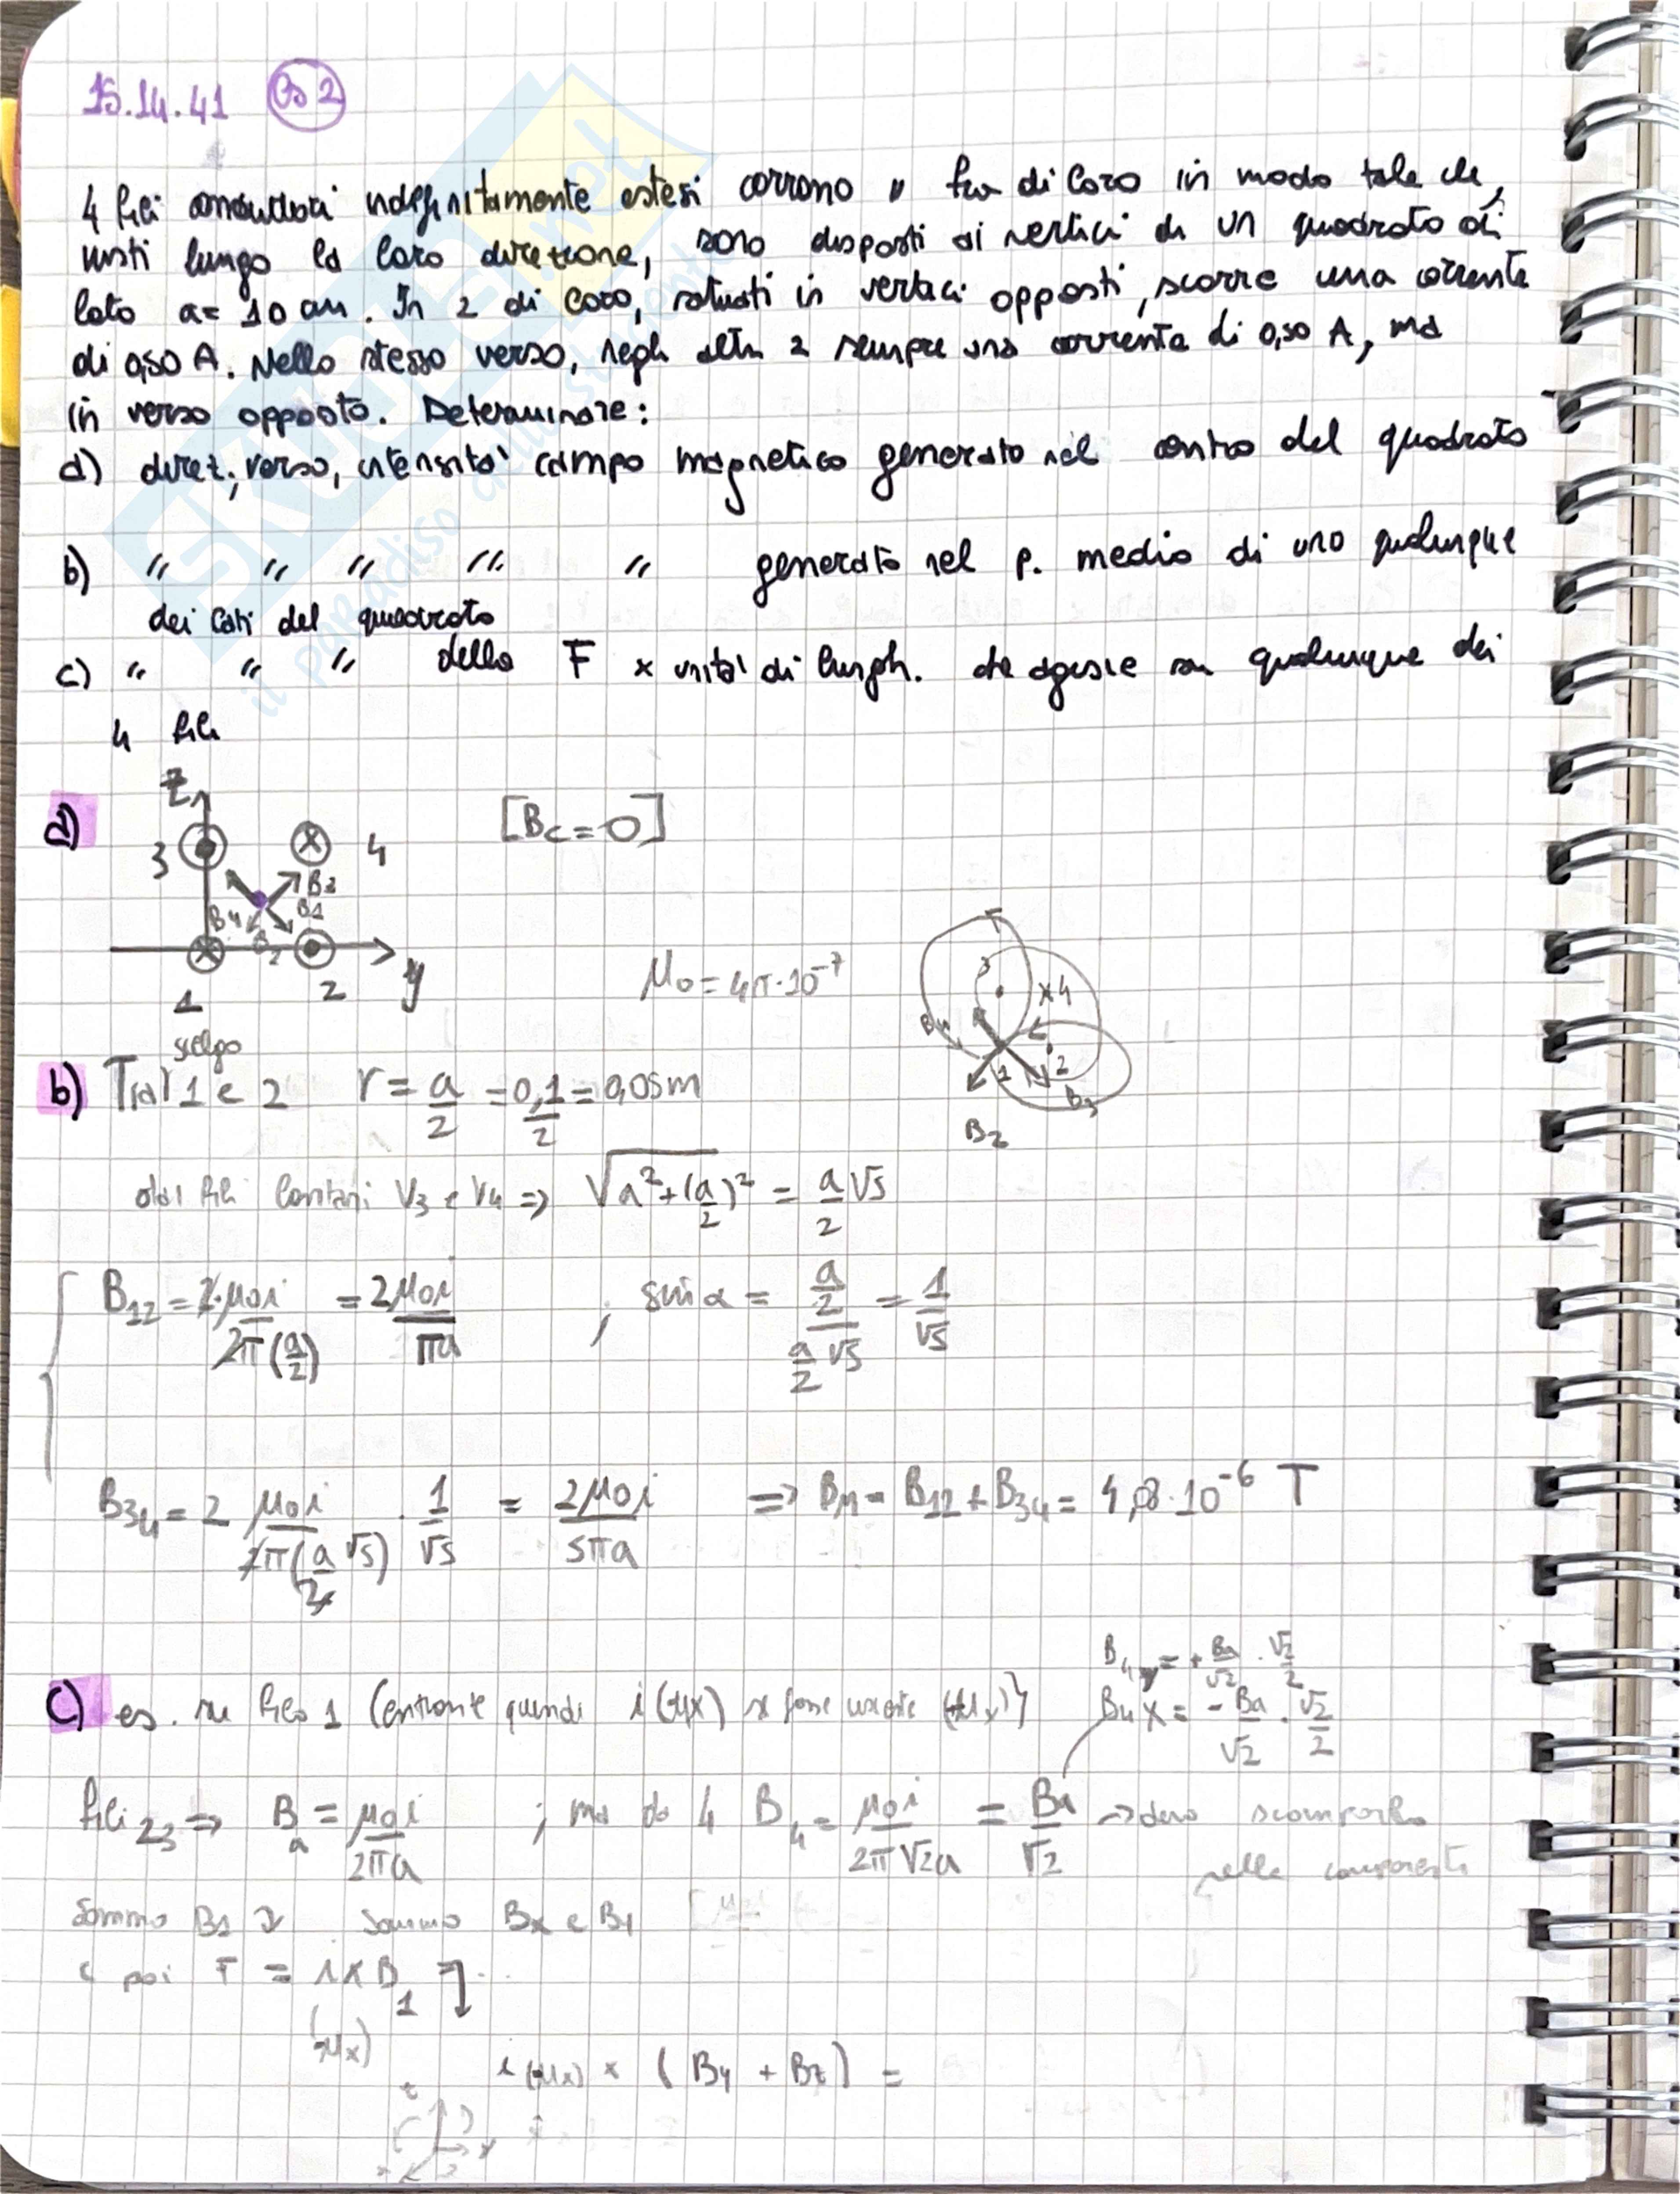 15.14.41 Es 2
4 fili conduttori indefinitamente estesi corrono // fra di loro in modo tale che,
visti lungo la loro direzione, sono disposti ai vertici di un quadrato di
lato a= 10 cm. In 2 di loro, situati in vertici opposti, scorre una corrente
di 0,50 A. Nello stesso verso, negli altri 2 sempre una corrente di 0,50 A, ma
in verso opposto. Determinare:
a) direz., verso, intensità campo magnetico generato nel centro del quadrato
b) " " " " " generato nel p. medio di uno qualunque
dei lati del quadrato
c) " " " della F x unità di lungh. che agisce su qualunque dei
4 fili
a) z [Bc = 0]
3 4
B3
B4 B1
B2
1 2 y
μ0 = 4π·10⁻⁷
3 x4
B4
1 2
B3
B2
scelgo
b) Tra 1 e 2 r = a/2 = 0,1/2 = 0,05m
dai fili lontani r3 e r4 => √(a² + (a/2)²) = a/2 √5
B12 = 2·μ0i / 2π(a/2) = 2μ0i / πa ; sin α = (a/2) / (a/2 √5) = 1/√5
B34 = 2 μ0i / 2π(a/2 √5) · 1/√5 = 2μ0i / 5πa => BM = B12 + B34 = 4,8·10⁻⁶ T
B4y = + Ba/√2 · √2/2
c) es. su filo 1 (entrante quindi i(-μx) se fosse uscente (+μx)) B4x = - Ba/√2 · √2/2
fili 23 => Ba = μ0i / 2πa ; ma da 4 B4 = μ0i / 2π√2a = Ba/√2 → devo scomporlo
nelle componenti
Sommo Bx e By
e poi F = i x B1
(-μx)
i(-μx) x (By + Bz) =
z
y
x
SKUOLA.net
il paradiso dello studente